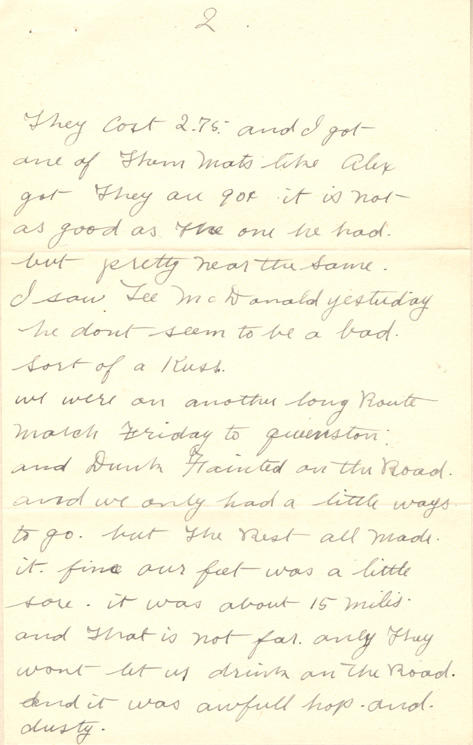 2
They Cost 2.75. and I got
one of Them Mats like Alex
got They are 90¢ it is not
as good as The one he had.
but pretty near the same.
I saw Lee McDonald yesterday
he dont seem to be a bad.
sort of a Kuss.
we were on another long Route
march Friday to queenston.
and Dunk Fainted on the Road.
and we only had a little ways
to go. but The Rest all made.
it. fine our feet was a little
sore. it was about 15 miles.
and That is not far. only They
wont let us drink on the Road.
and it was awfull hop. and.
dusty.